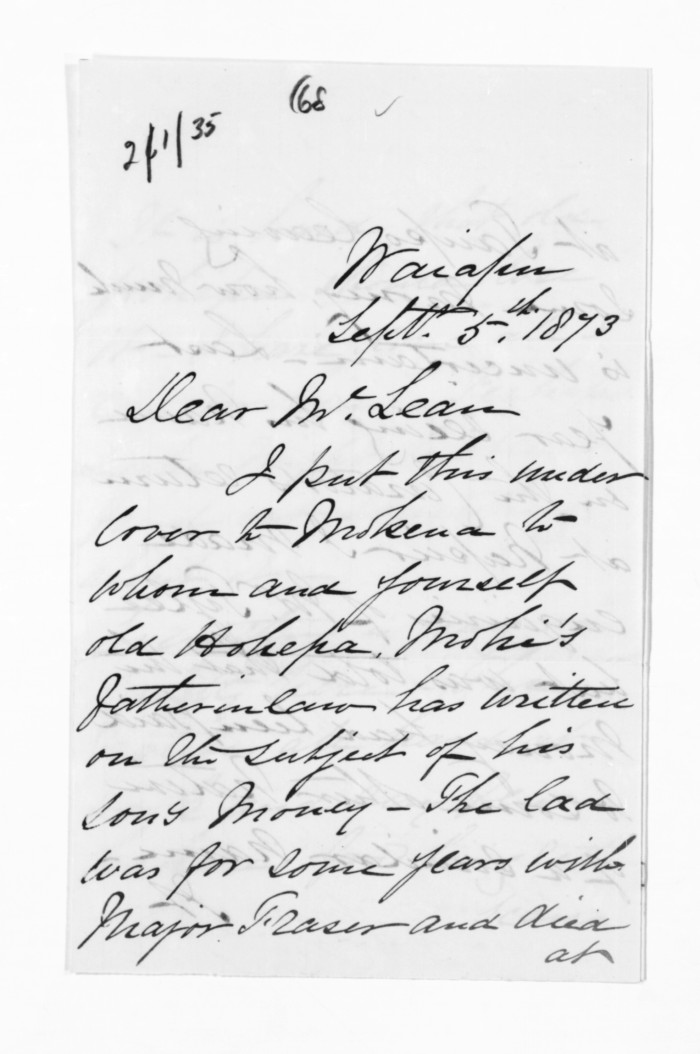 (68
2/1/35
Waiapu
Septr. 5.th 1873
Dear Mc. Lean
I put this under
cover to Mokena to
whom and yourself
old Hohepa, Mohi's
fatherinlaw has written
on the subject of his
son's Money - The lad
was for some years with
Major Fraser and died
at